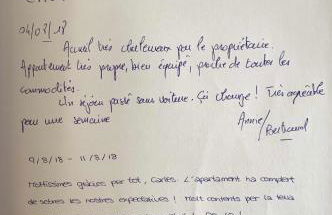 04/08/18
Accueil très chaleureux par le propriétaire.
Appartement très propre, bien équipé, proche de toutes les
commodités.
Un séjour passé sans voiture. Ça change ! Très agréable
pour une semaine
Annie/Bertrand
9/8/18 - 11/8/18
Moltíssimes gràcies per tot, Carles. L'apartament ha complert
de sobres les nostres expectatives ! Molt contents per la teva